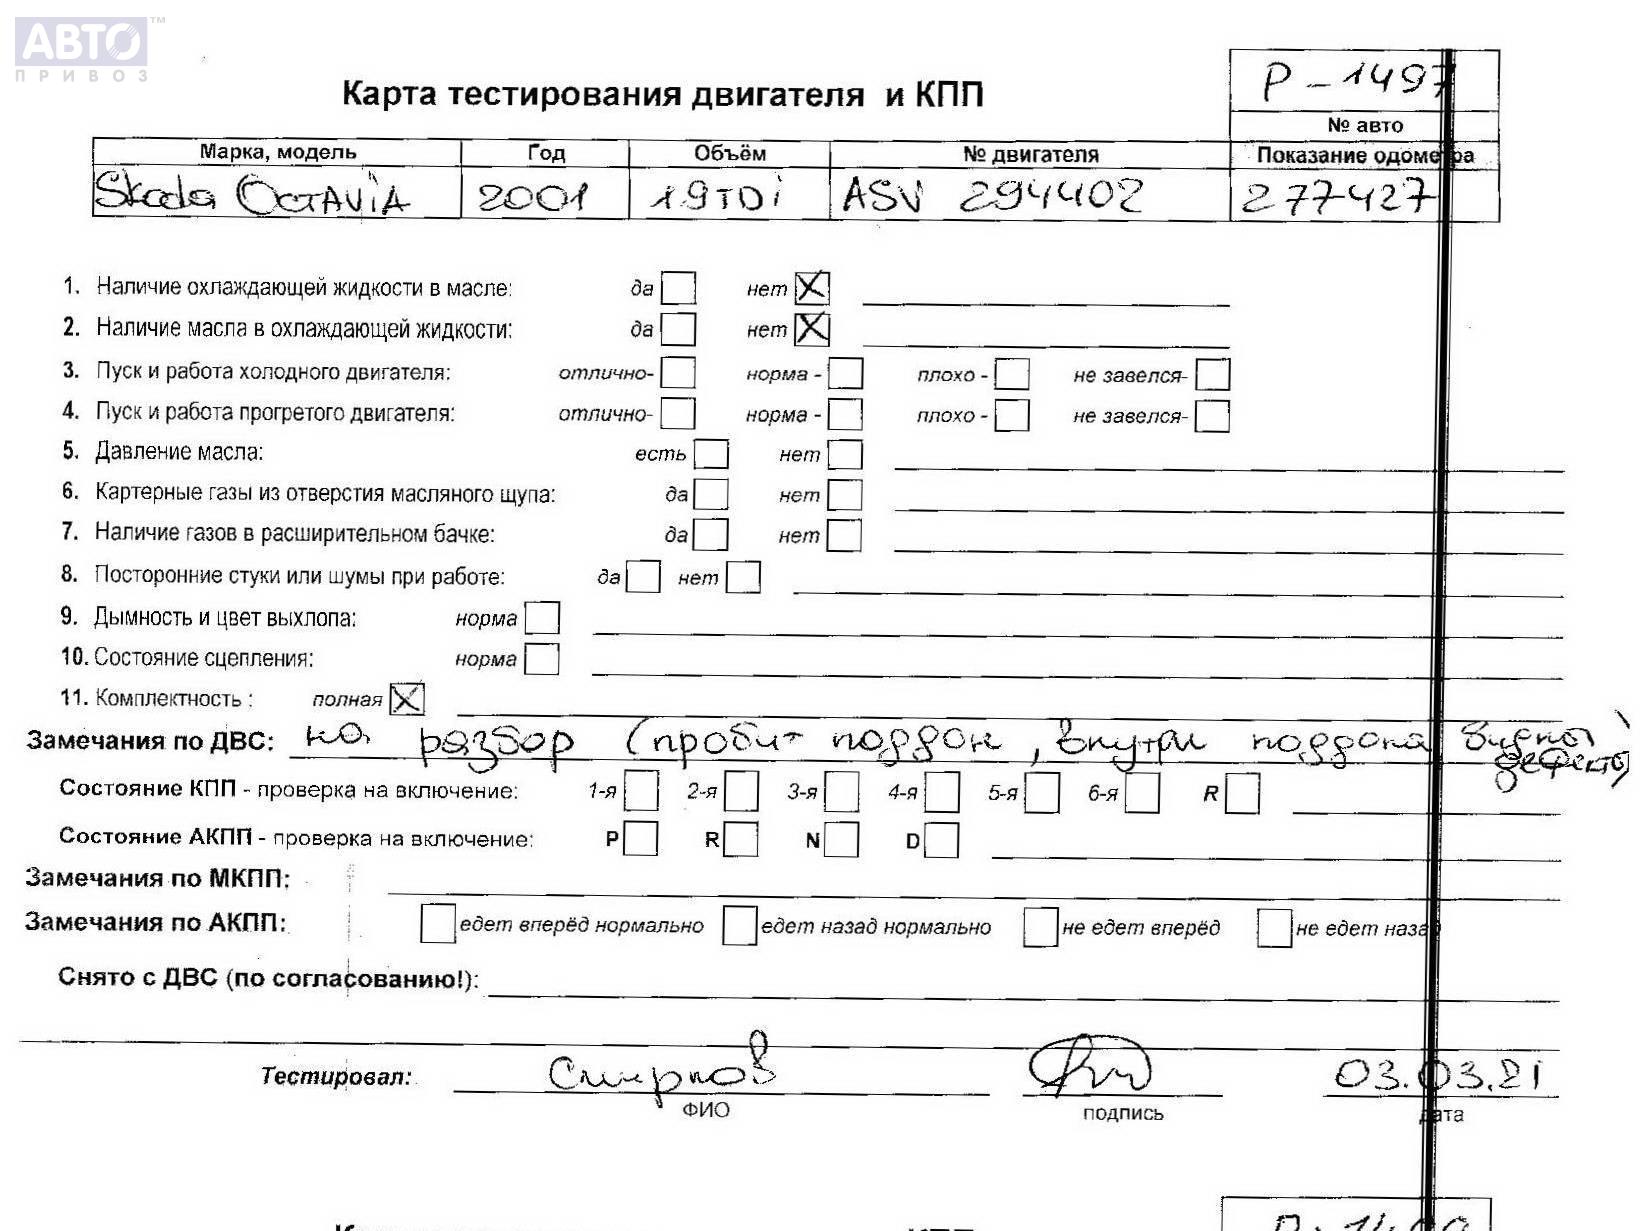 АВТО™
ПРИВОЗ
Р-1497
Карта тестирования двигателя и КПП
№ авто
Марка, модель Год Объём № двигателя Показание одометра
Skoda OCTAViA 2001 1.9TDi ASV 294402 277427
1. Наличие охлаждающей жидкости в масле: да нет
2. Наличие масла в охлаждающей жидкости: да нет
3. Пуск и работа холодного двигателя: отлично- норма - плохо - не завелся-
4. Пуск и работа прогретого двигателя: отлично- норма - плохо - не завелся-
5. Давление масла: есть нет
6. Картерные газы из отверстия масляного щупа: да нет
7. Наличие газов в расширительном бачке: да нет
8. Посторонние стуки или шумы при работе: да нет
9. Дымность и цвет выхлопа: норма
10. Состояние сцепления: норма
11. Комплектность : полная
Замечания по ДВС: на разбор (пробит поддон, внутри поддона видны
дефекты)
Состояние КПП - проверка на включение: 1-я 2-я 3-я 4-я 5-я 6-я R
Состояние АКПП - проверка на включение: P R N D
Замечания по МКПП:
Замечания по АКПП: едет вперёд нормально едет назад нормально не едет вперёд не едет назад
Снято с ДВС (по согласованию!):
Тестировал: Смирнов 03.03.21
ФИО подпись дата